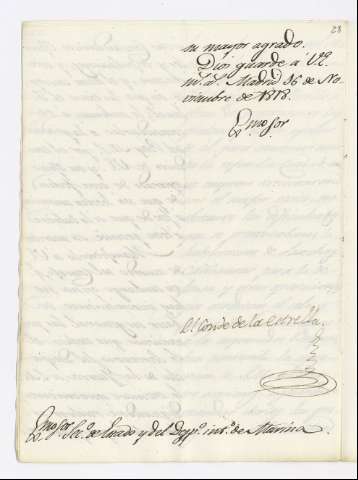 28
su mayor agrado.
Dios guarde a V.E.
m.s a.s Madrid 16 de No-
viembre de 1818.
Exmo Sor
El Conde de la Estrella.
Exmo Sor Sec.o de Estado y del Despo. into. de Marina.